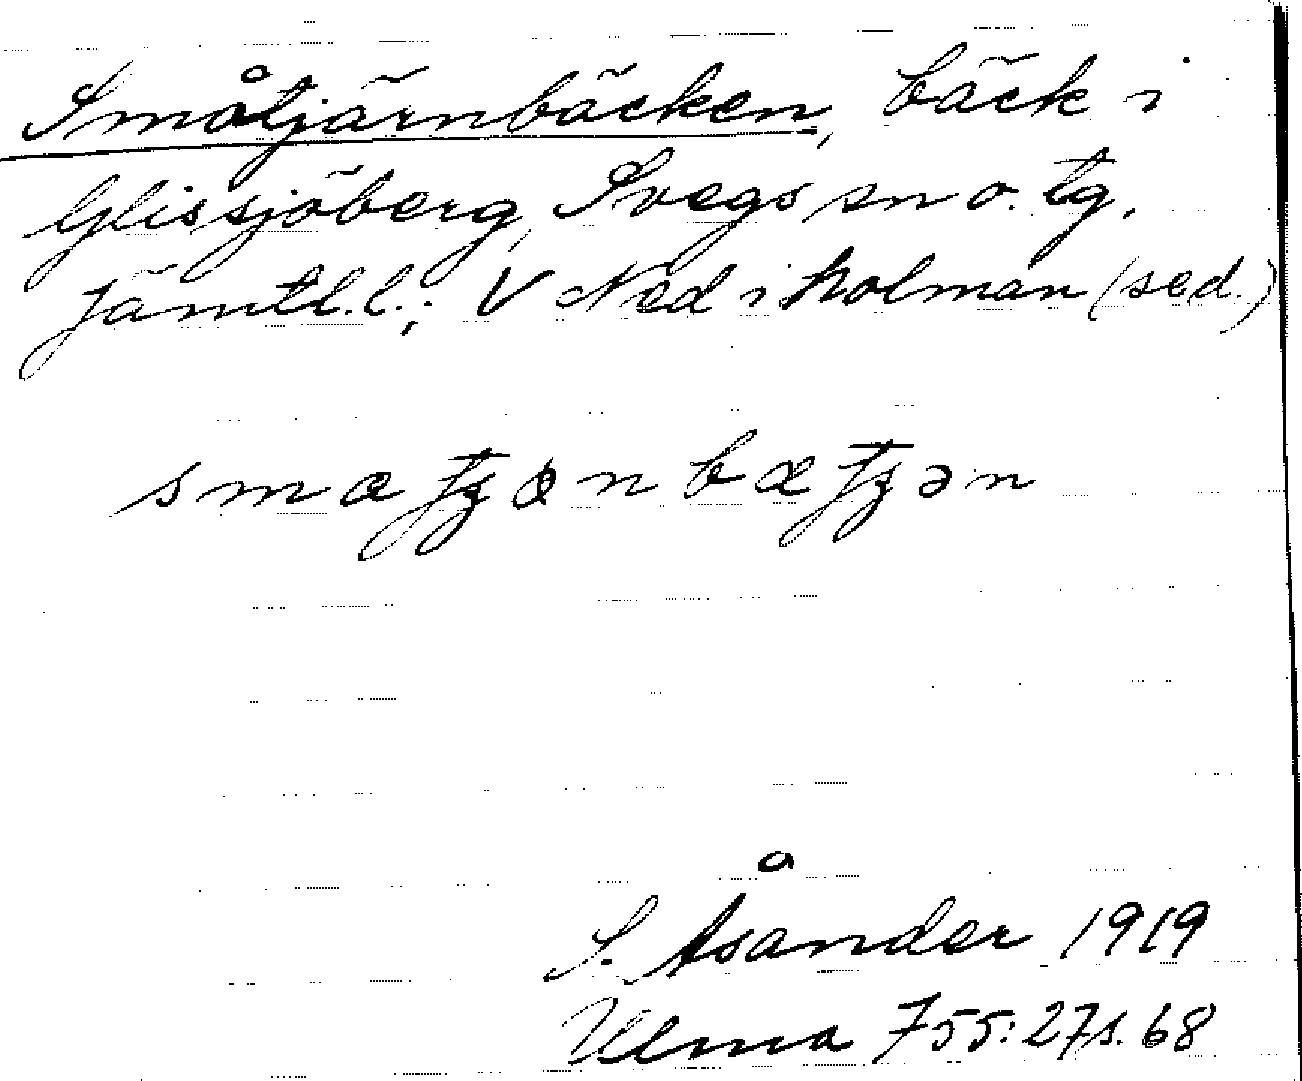 Småtjärnbäcken, bäck i
Glissjöberg, Svegs sn o. tg.
Jämtl.l.; V Nediholman (sed.)
S. Åsander 1919
Ulma 755:27 s. 68